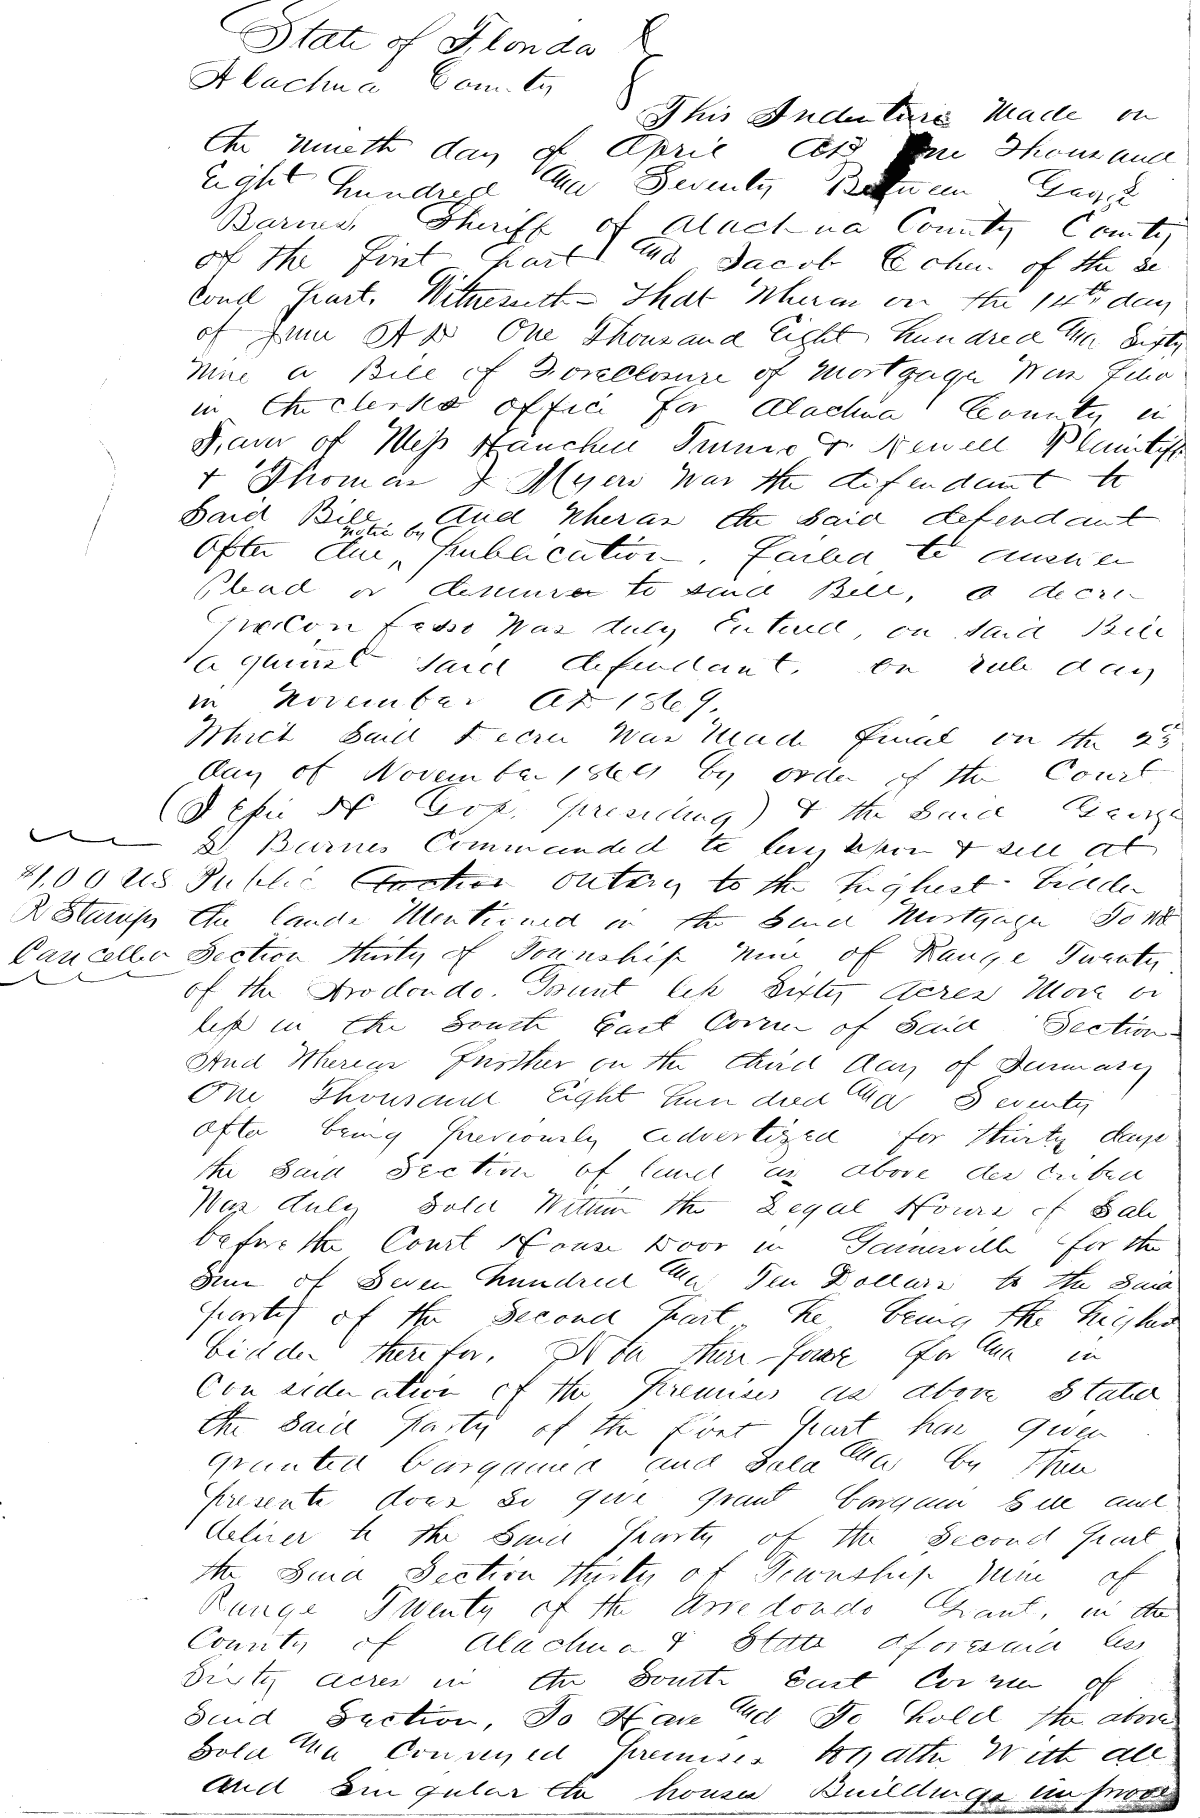 State of Florida
Alachua County
This Indenture Made on
the Nineth day of April AD One Thousand
Eight hundred and Seventy Between George
Barnes, Sheriff of Alachua County County
of the first part and Jacob of the se
cond part. Witnesseth That Wheras on the 14th day
of June AD One Thousand Eight hundred and Sixty
Nine a Bill of Foreclosure of Mortgage Was filed
in the clerks office for Alachua County in
Favor of Mess & Newell Plaintiff
& Thomas J Myers Was the defendant to
Said Bill and Wheras the said defendant
After due notice by publication, failed to answer
Plead or demurer to said Bill, a decree
pro Confesso Was duly Entered, on said Bill
against said defendant, on rule day
in November AD 1869.
Which Said Decree Was Made final on the 23
day of November 1869 by order of the Court
(Jesse H Goss, presiding) & the Said George
S Barnes Commanded to levy upon & sell at
$1.00 U S Public Auction outcry to the highest bidder
R Stamps the lands Mentioned in the Said Mortgage To Wit
Cancelled Section thirty of Township Nine of Range Twenty
of the Arodondo. Grant less Sixty Acres More or
less in the South East Corner of Said Section
And Whereas further on the third day of January
One Thousand Eight hundred and Seventy
after being previously advertized for thirty days
the Said Section of land as above described
Was duly Sold Within the Legal Hours of Sale
before the Court House Door in Gainesville for the
Sum of Seven hundred and Ten Dollars to the Said
party of the Second part he being the highest
bidder therefor. Now there-fore for and in
Consideration of the premises as above Stated
the Said party of the first part has given
granted bargained and Sold and by these
presents does So give grant bargain Sell and
deliver to the Said party of the Second part
the Said Section thirty of Township Nine of
Range Twenty of the Arredondo Grant, in the
County of Alachua & State aforesaid less
Sixty acres in the South East Corner of
Said Section, To Have and To hold the above
Sold and Conveyed premises togather With all
and Singular the houses Buildings improve